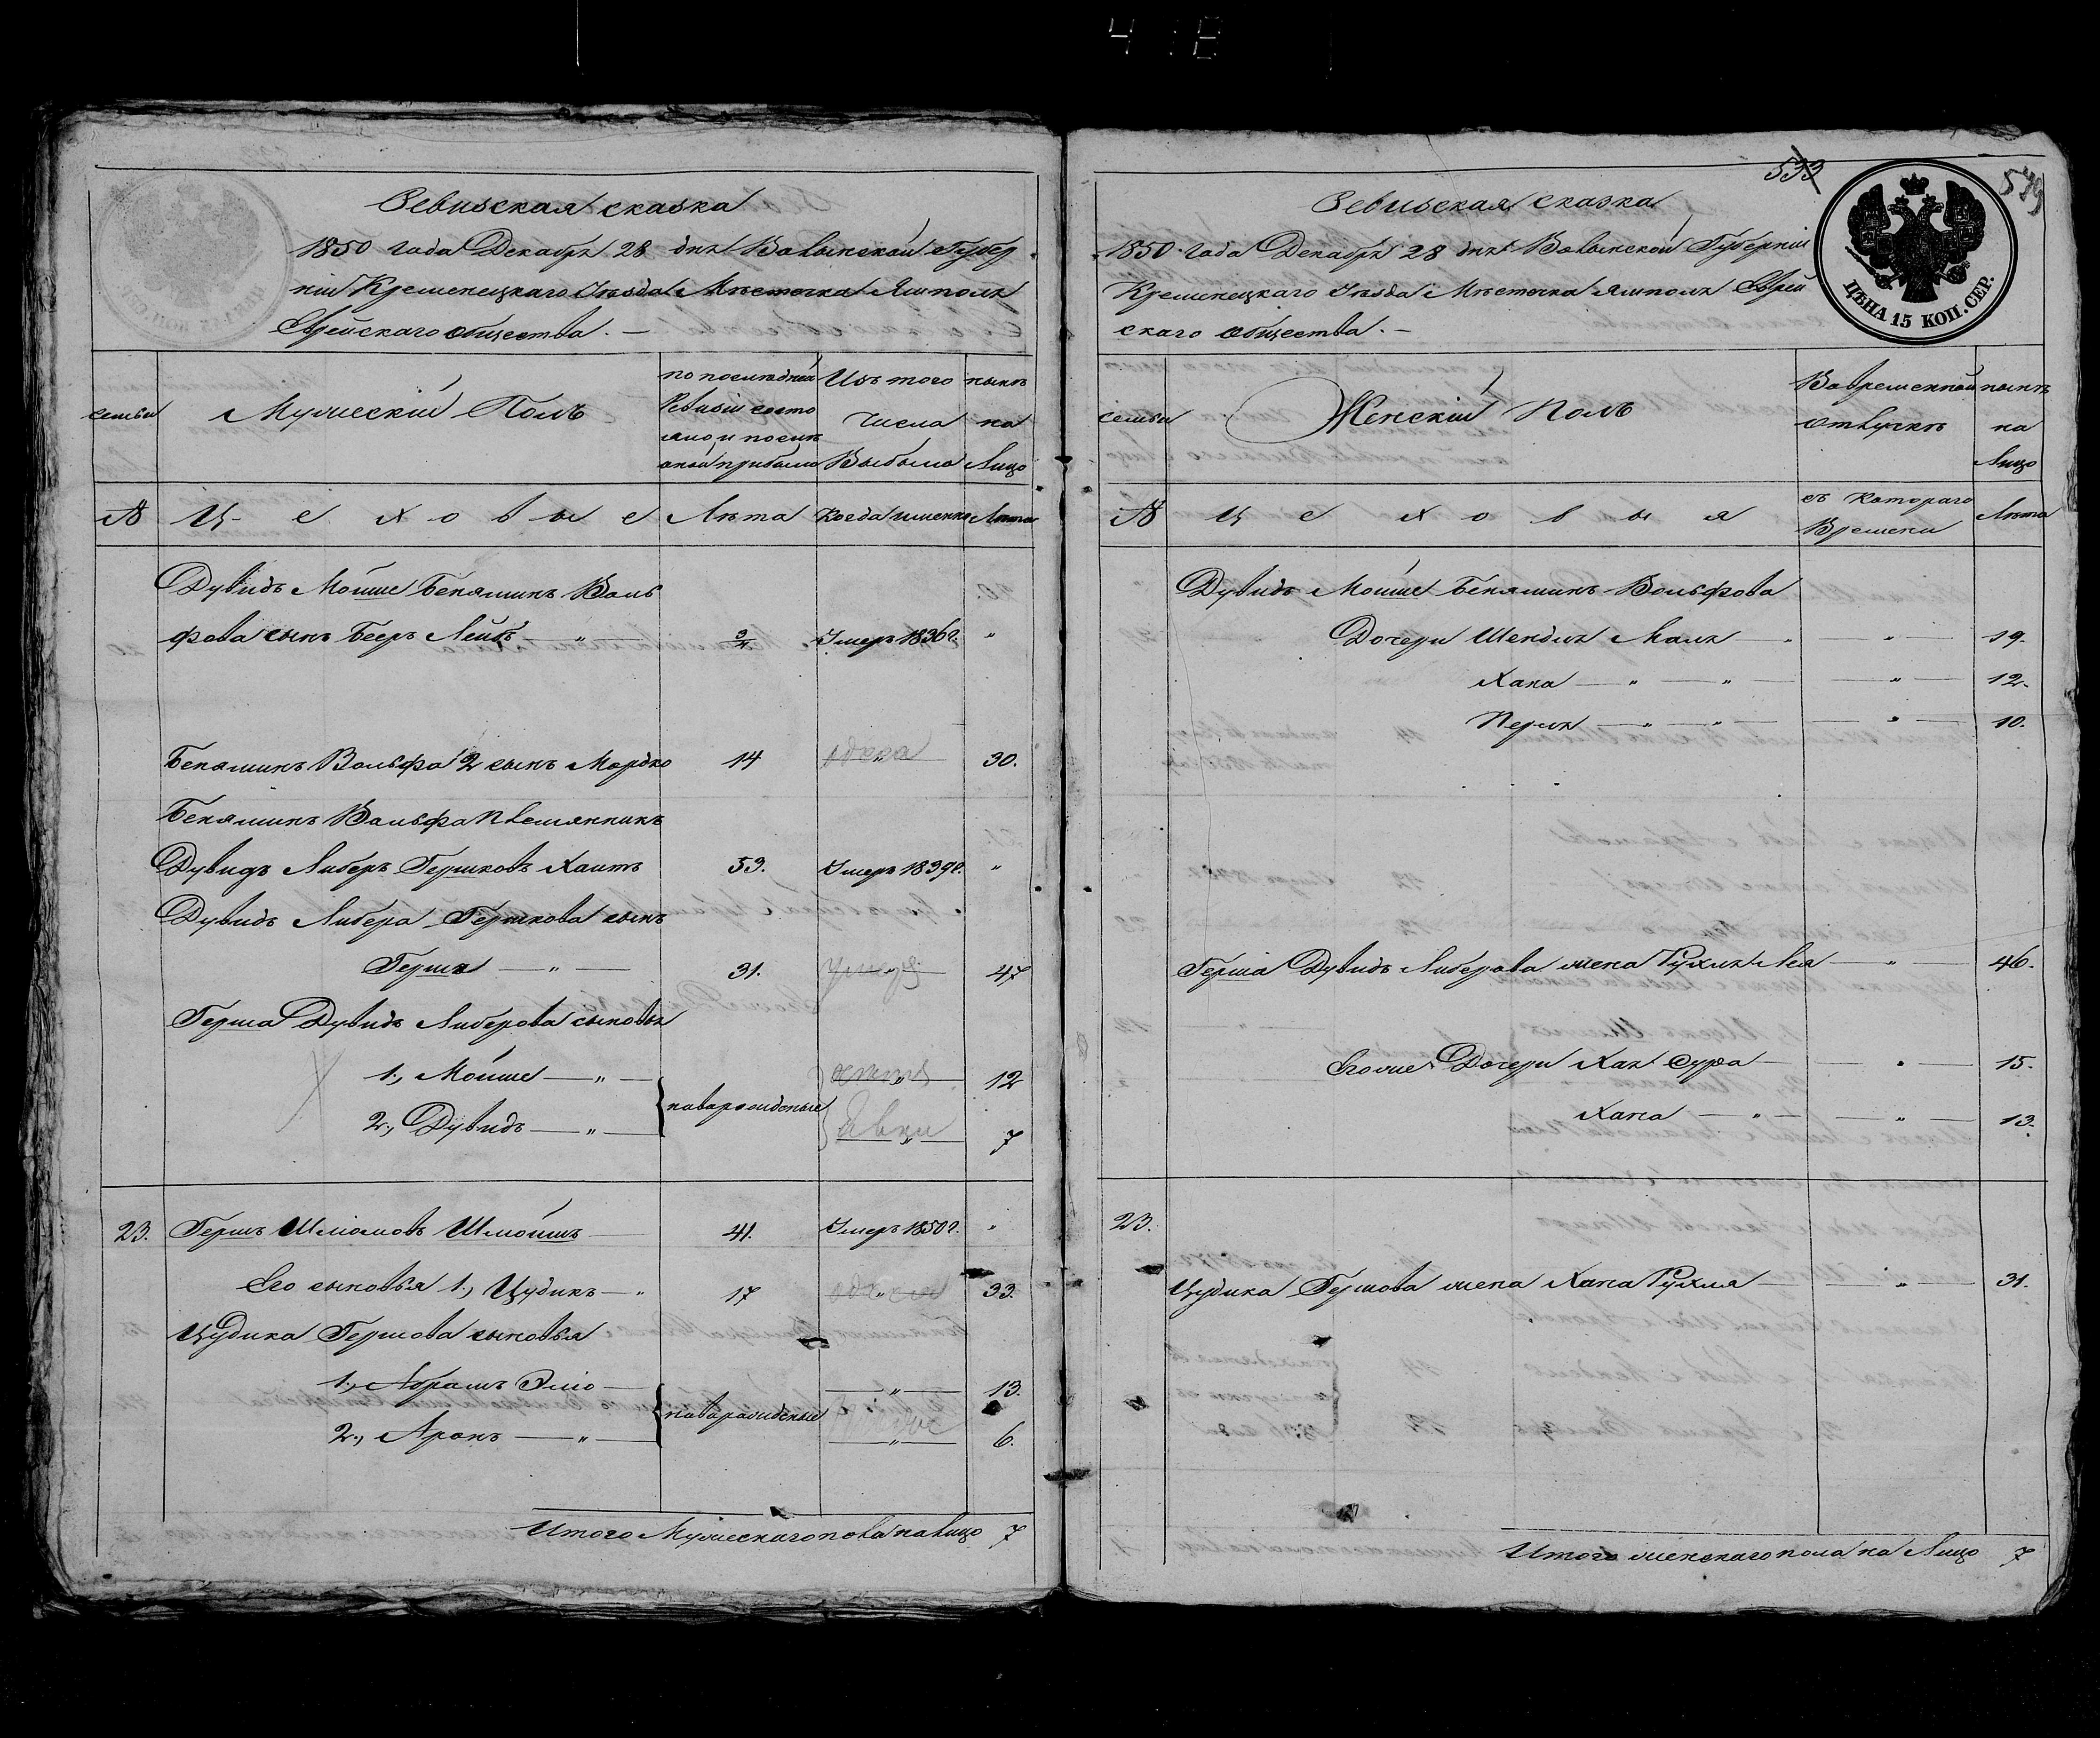 Ревизская сказка
1850 года Декабря 28 дня Волынской Губер
ніи Кременецкаго Уѣзда Мѣстечка Ямполя
Еврейскаго общества. —
семьи
Мужескій Полъ
по послѣдней
Ревизіи состо
яло и послѣ
оной прибыло
Изъ того
числа
Выбыло
нынѣ
на
Лицо
№
Ц е х о в ы е
Лѣта
Когда именно
Лѣта
Дувидъ Мойше Беняминъ Воль
фова сынъ Беръ Лейбъ — " — Умеръ 1836 г. "
Беняминъ Вольфа 2 сынъ Мордко 14 " 30.
Беняминъ Вольфа племянникъ
Дувидъ Либеръ Гершковъ Хаитъ 53. Умеръ 1839 г. "
Дувидъ Либера Гершкова сынъ
Герша — " — 31. умеръ 47
Герша Дувидъ Либерова сыновья
1., Мойше — " — новорожденные " 12
2., Дувидъ — " — явки " 7
23. Гершъ Шліомовъ Шмойшъ 41. Умеръ 1850 г. "
Его сыновья 1., Цудикъ — " 17 " 33.
Цудика Гершова сыновья
1., Абрамъ Эліо — новорожденые " 13.
2., Аронъ — " — " 6.
Итого Мужескаго пола на лицо 7
533
579
Ревизская сказка
1850 года Декабря 28 дня Волынской Губерніи
Кременецкаго Уѣзда Мѣстечка Ямполя Еврей
скаго общества. —
ЦѢНА 15 КОП. СЕР.
семьи
Женскій Полъ
Во временной
отлучкѣ
нынѣ
на
Лицо
№
Ц е х о в ы я
съ котораго
Времени
Лѣта
Дувидъ Мойше Беняминъ Вольфова
Дочери Шендля Маля — " — 19.
Хана — " — " — " — 12.
Перля — " — " — " — 10.
Герша Дувидъ Либерова жена Рухля Лея — " — 46.
Его же Дочери Хая Сура — " — 15.
Хана — " — " — 13.
23.
Цудика Гершова жена Хана Рухля — " — 31.
Итого женскаго пола на Лицо 7